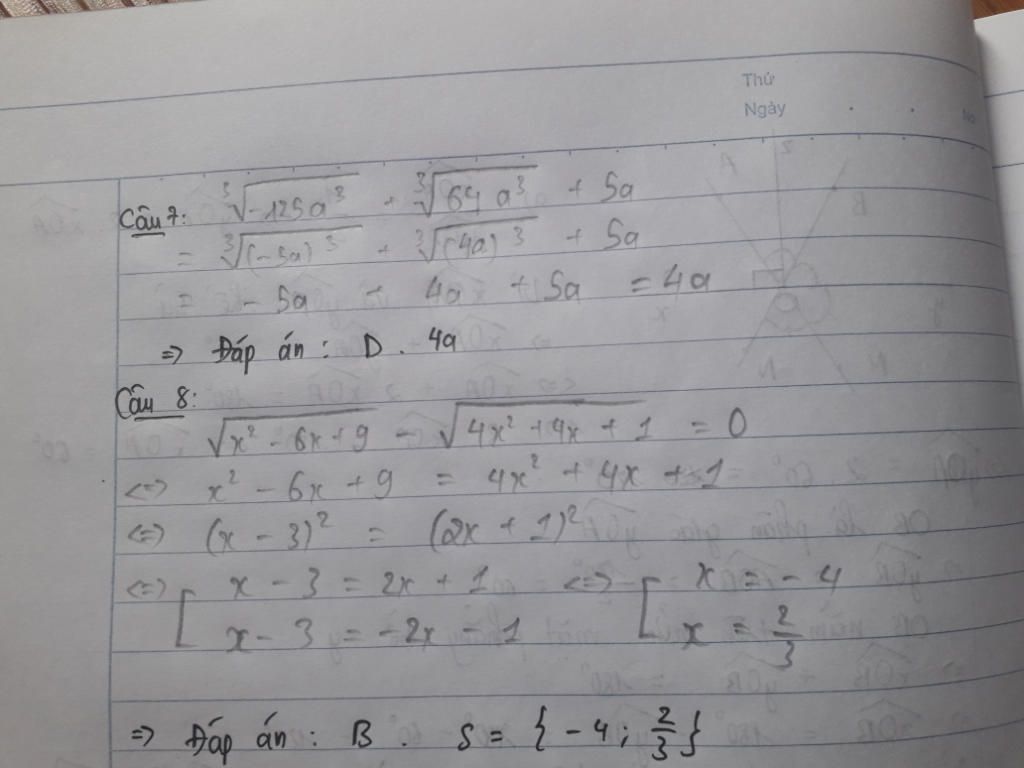 Thứ
Ngày
Câu 7: ∛(-125a³) + ∛(64a³) + 5a
= ∛((-5a)³) + ∛((4a)³) + 5a
= - 5a + 4a + 5a = 4a
=> Đáp án : D . 4a
Câu 8:
√(x² - 6x + 9) - √(4x² + 4x + 1) = 0
<=> x² - 6x + 9 = 4x² + 4x + 1
<=> (x - 3)² = (2x + 1)²
<=> [ x - 3 = 2x + 1 <=> [ x = - 4
x - 3 = -2x - 1 x = 2/3
=> Đáp án : B . S = { - 4 ; 2/3 }